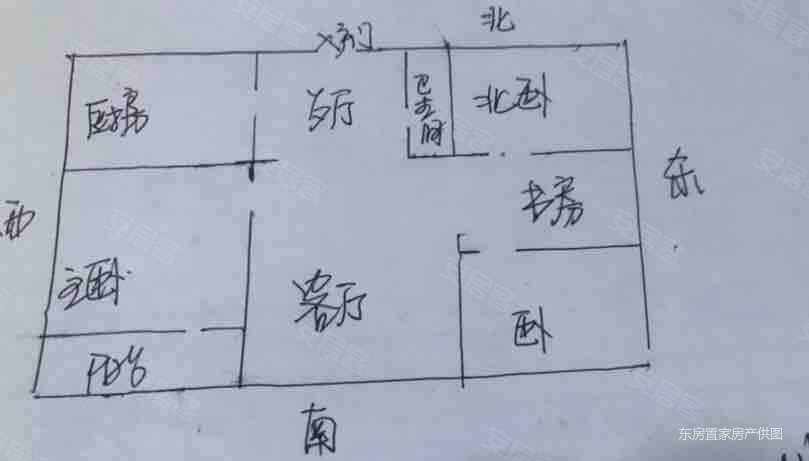 北
大门
厨房
岁厅
卫生间
北卧
东
书房
西
主卧
客厅
卧
阳台
南
东房置家房产供图
安居客